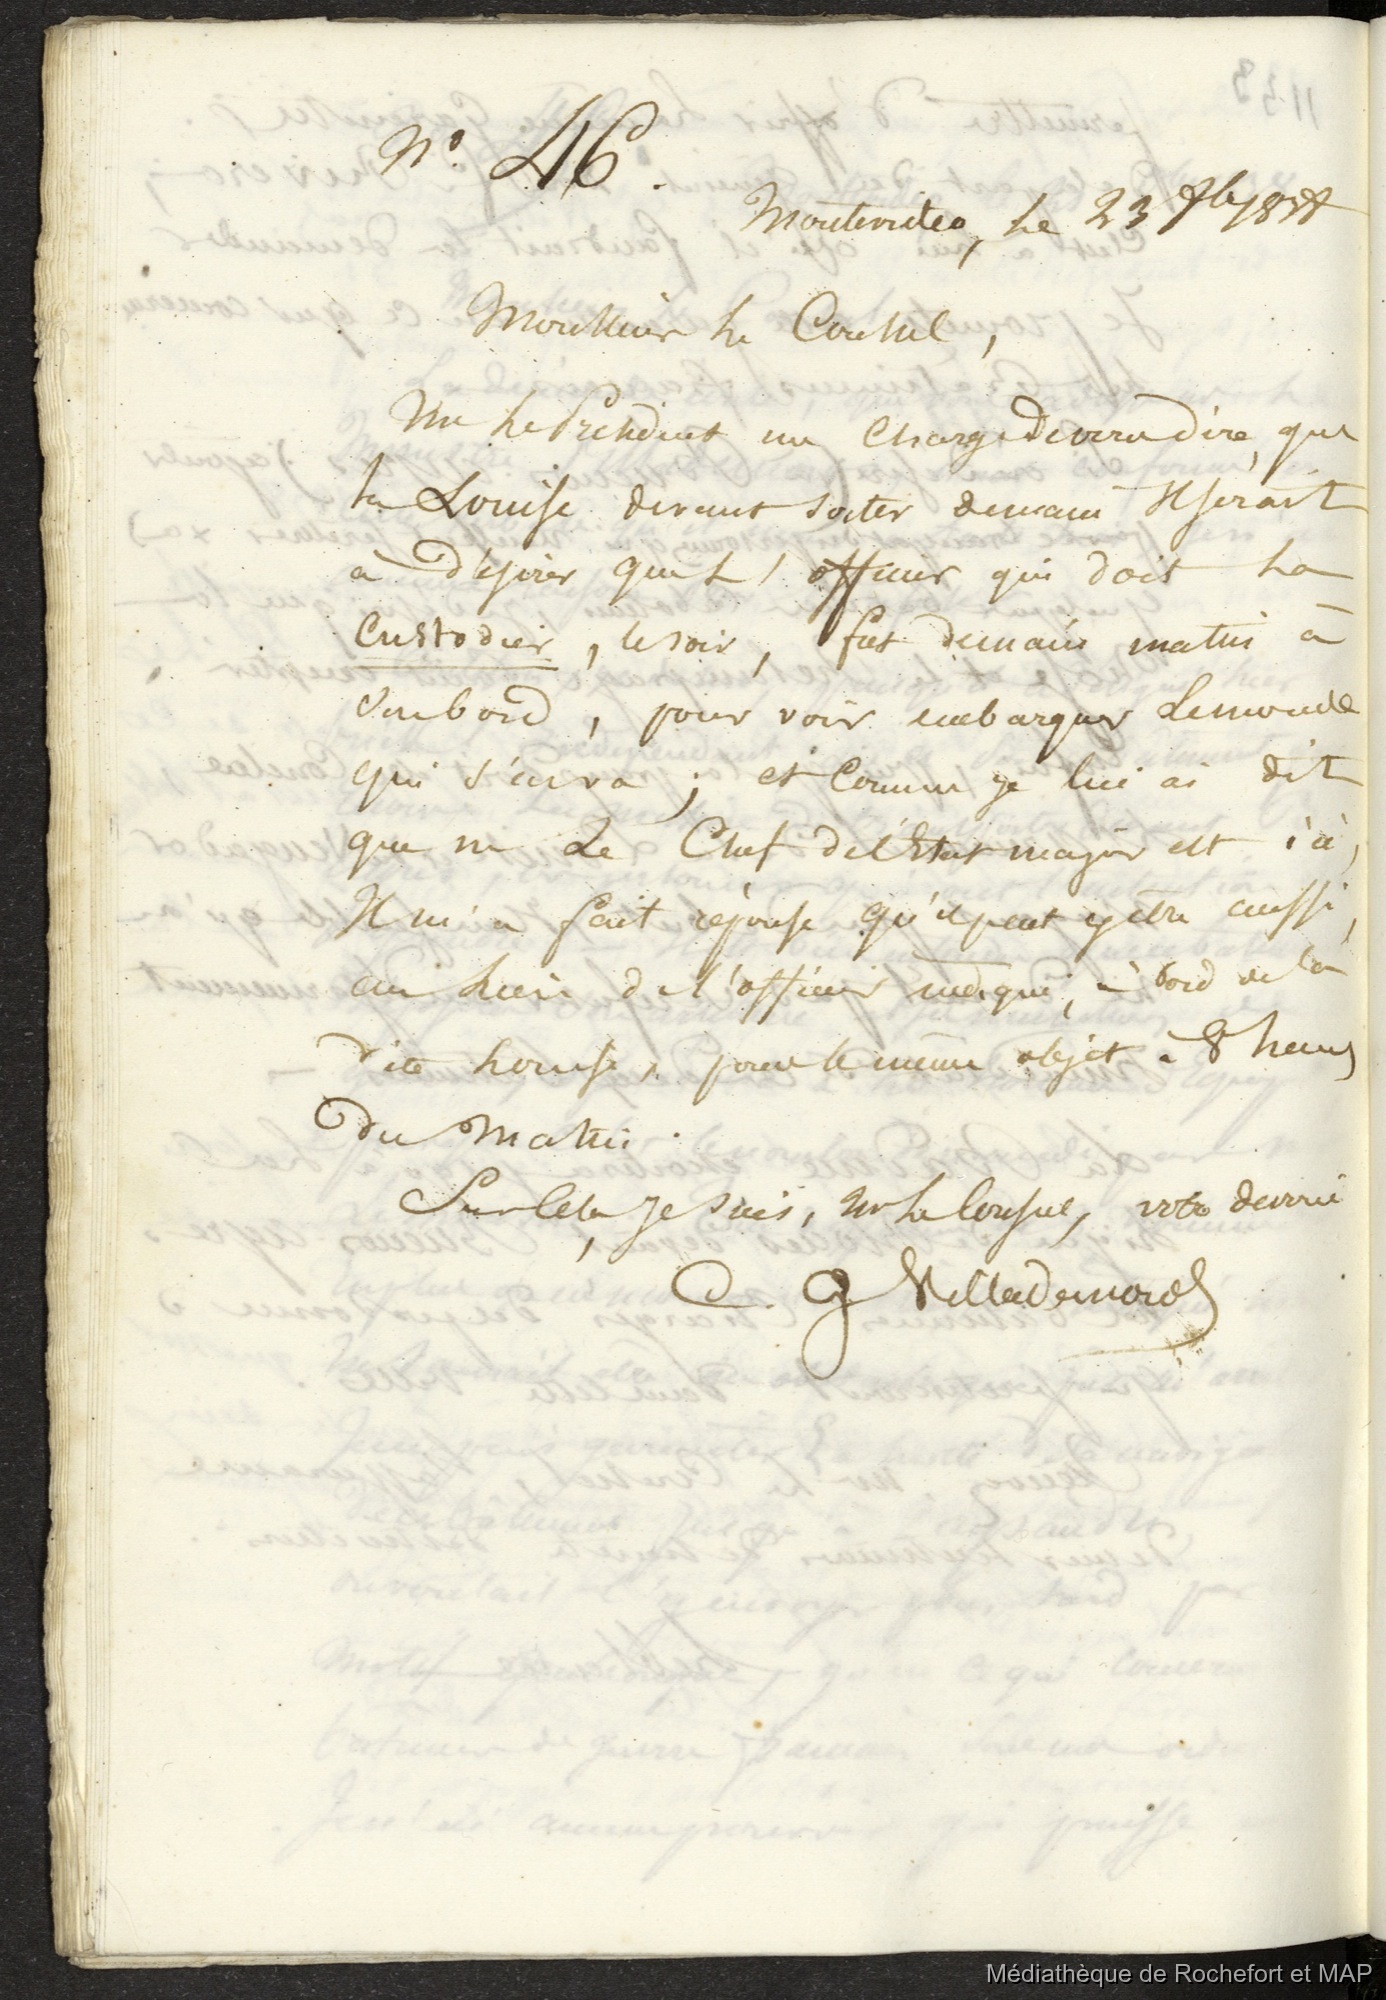 N.° 46.
Montevideo, le 23 8bre 1838
Monsieur le Consul,
Mr le Président me charge de vous dire, que
la Louise devant sortir demain Il serait
à désirer que l'officier, qui doit la
custodier, le soir, fût demain matin à
son bord, pour voir embarquer le monde
qui s'en va ; et comme je lui ai dit
que ni le Chef de l'Etat major est ici,
Il m'a fait réponse qu'il peut y être aussi,
au lieu de l'officier indiqué, à bord de la
dite Louise, pour le même objet à 8 heures
du matin.
Sur cela, je suis, Mr le Consul, votre dévoué
C. G Villademoros
Médiathèque de Rochefort et MAP